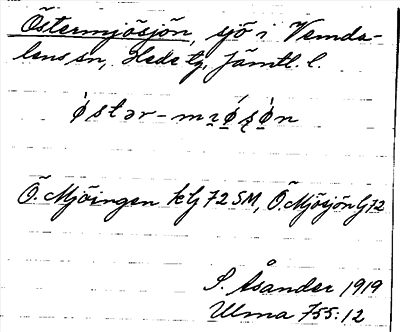 Östermjösjön, sjö i Vemda-
lens sn, Hede tg, Jämtl. l.
ǿstər-mıǿʂø̀n
Ö. Mjöingen klg 72 SM, Ö. Mjösjön G 72
S. Åsander 1919
Ulma 755:12